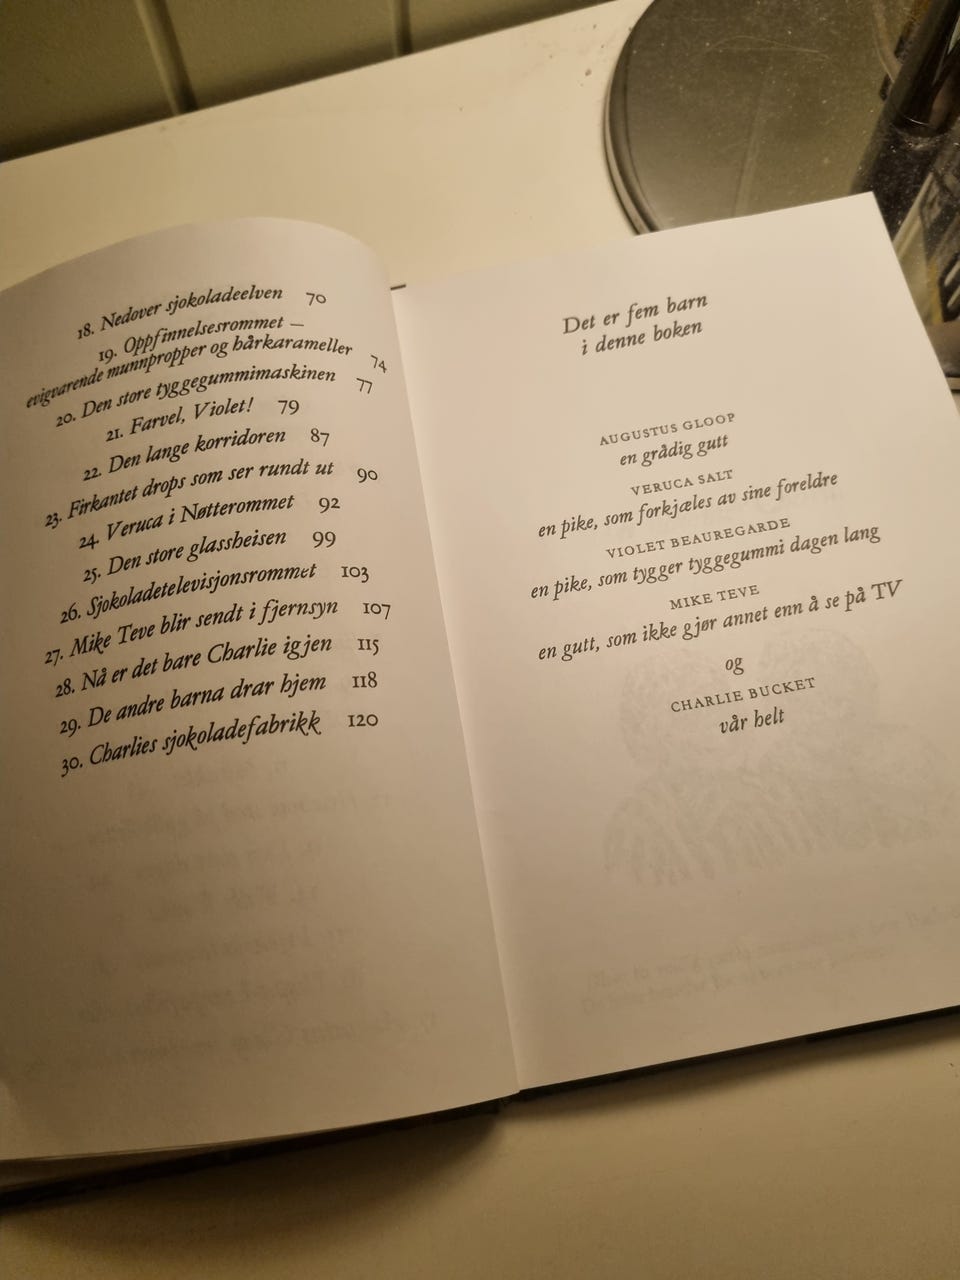 18. Nedover sjokoladeelven 70
19. Oppfinnelsesrommet –
evigvarende munnpropper og hårkarameller 74
20. Den store tyggegummimaskinen 77
21. Farvel, Violet! 79
22. Den lange korridoren 87
23. Firkantet drops som ser rundt ut 90
24. Veruca i Nøtterommet 92
25. Den store glassheisen 99
26. Sjokoladetelevisjonsrommet 103
27. Mike Teve blir sendt i fjernsyn 107
28. Nå er det bare Charlie igjen 115
29. De andre barna drar hjem 118
30. Charlies sjokoladefabrikk 120
Det er fem barn
i denne boken
AUGUSTUS GLOOP
en grådig gutt
VERUCA SALT
en pike, som forkjæles av sine foreldre
VIOLET BEAUREGARDE
en pike, som tygger tyggegummi dagen lang
MIKE TEVE
en gutt, som ikke gjør annet enn å se på TV
og
CHARLIE BUCKET
vår helt